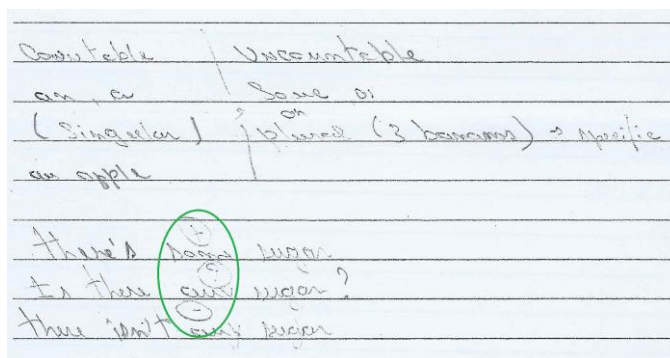 Countable / Uncountable
an, a Some or
(Singular) or plural (3 bananas) → specific
an apple
(+)
there's some sugar
(?)
Is there any sugar?
(-)
there isn't any sugar